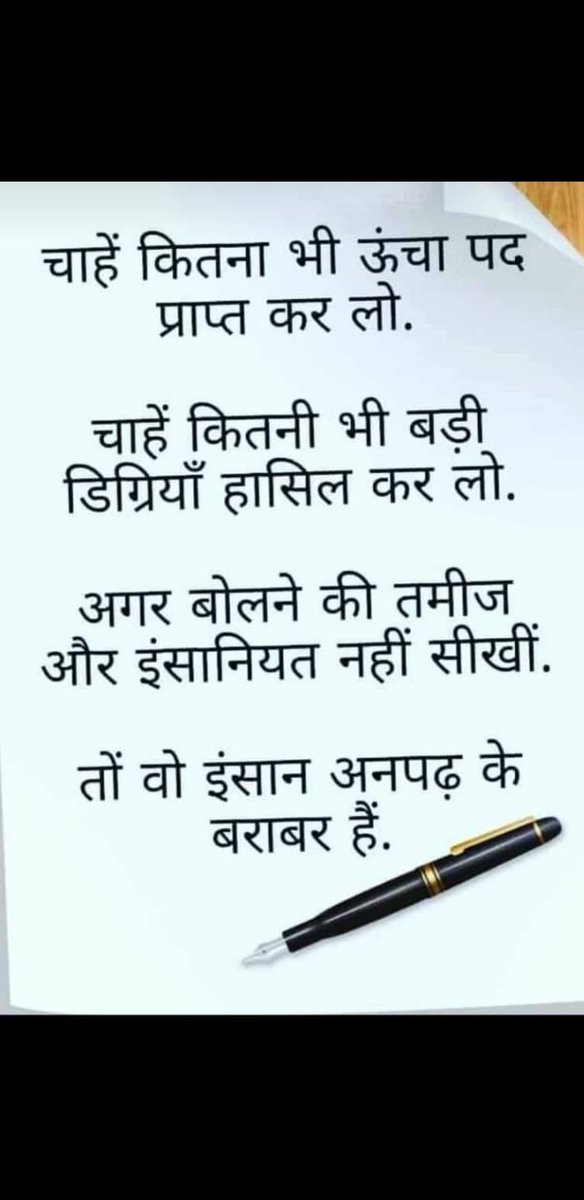 चाहें कितना भी ऊंचा पद
प्राप्त कर लो.
चाहें कितनी भी बड़ी
डिग्रियाँ हासिल कर लो.
अगर बोलने की तमीज
और इंसानियत नहीं सीखीं.
तों वो इंसान अनपढ़ के
बराबर हैं.